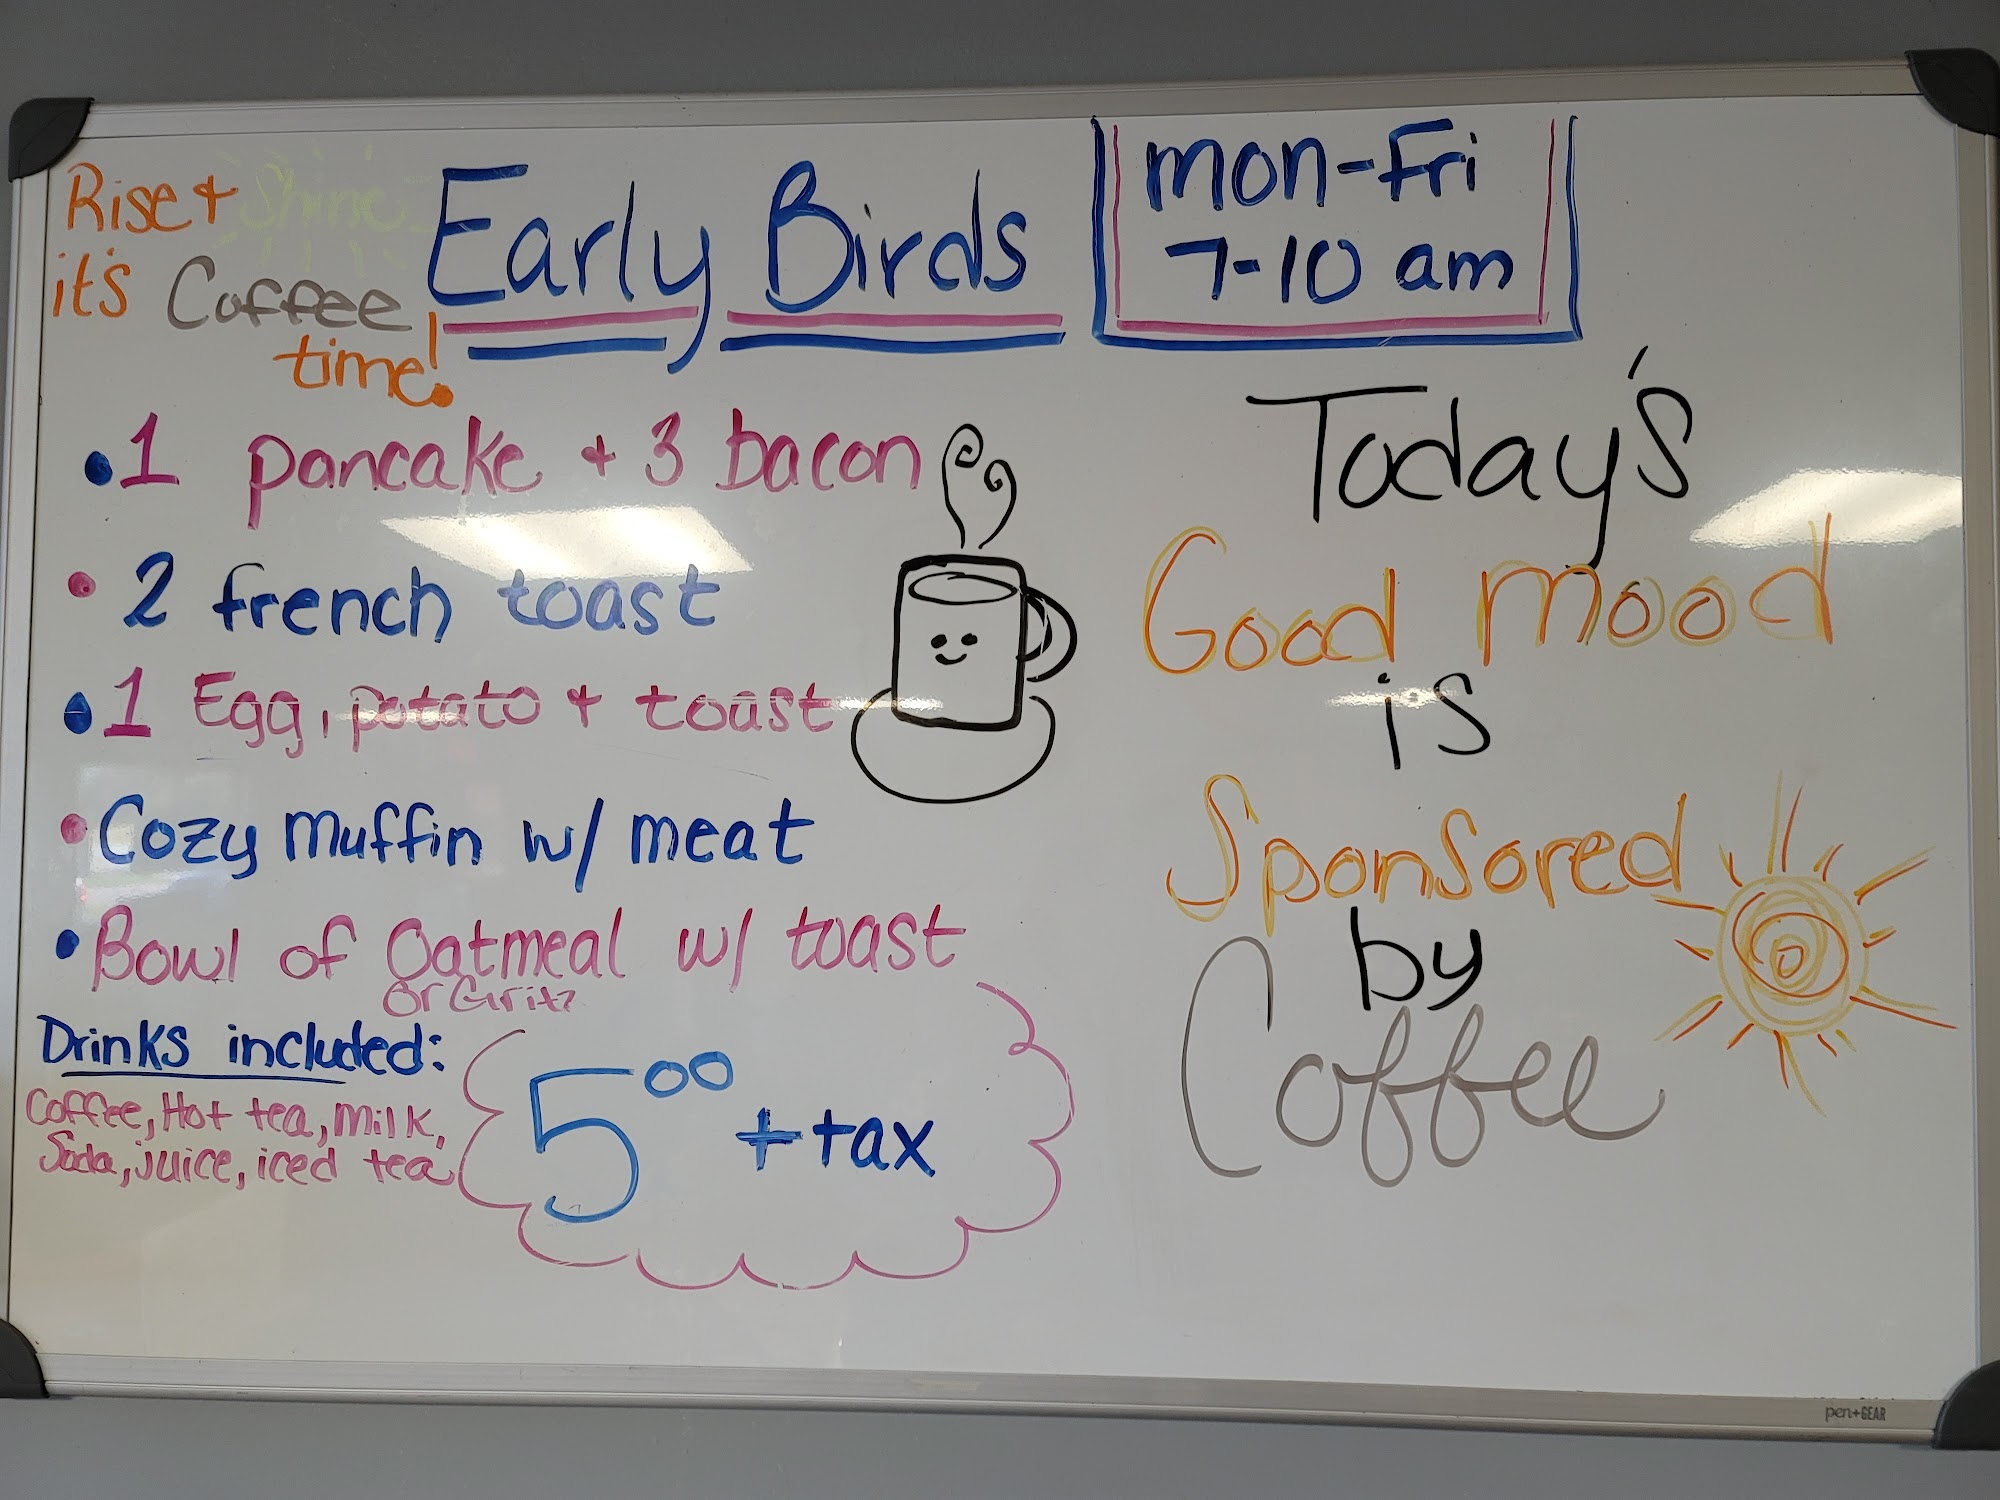 Rise + Shine
it's Coffee
time!
Early Birds
mon-Fri
7-10 am
• 1 pancake + 3 bacon
• 2 french toast
• 1 Egg, potato + toast
• Cozy muffin w/ meat
• Bowl of Oatmeal w/ toast
or Gritz
Drinks included:
Coffee, Hot tea, milk,
Soda, juice, iced tea
5⁰⁰ + tax
Today's
Good mood
is
Sponsored
by
Coffee
pen+GEAR